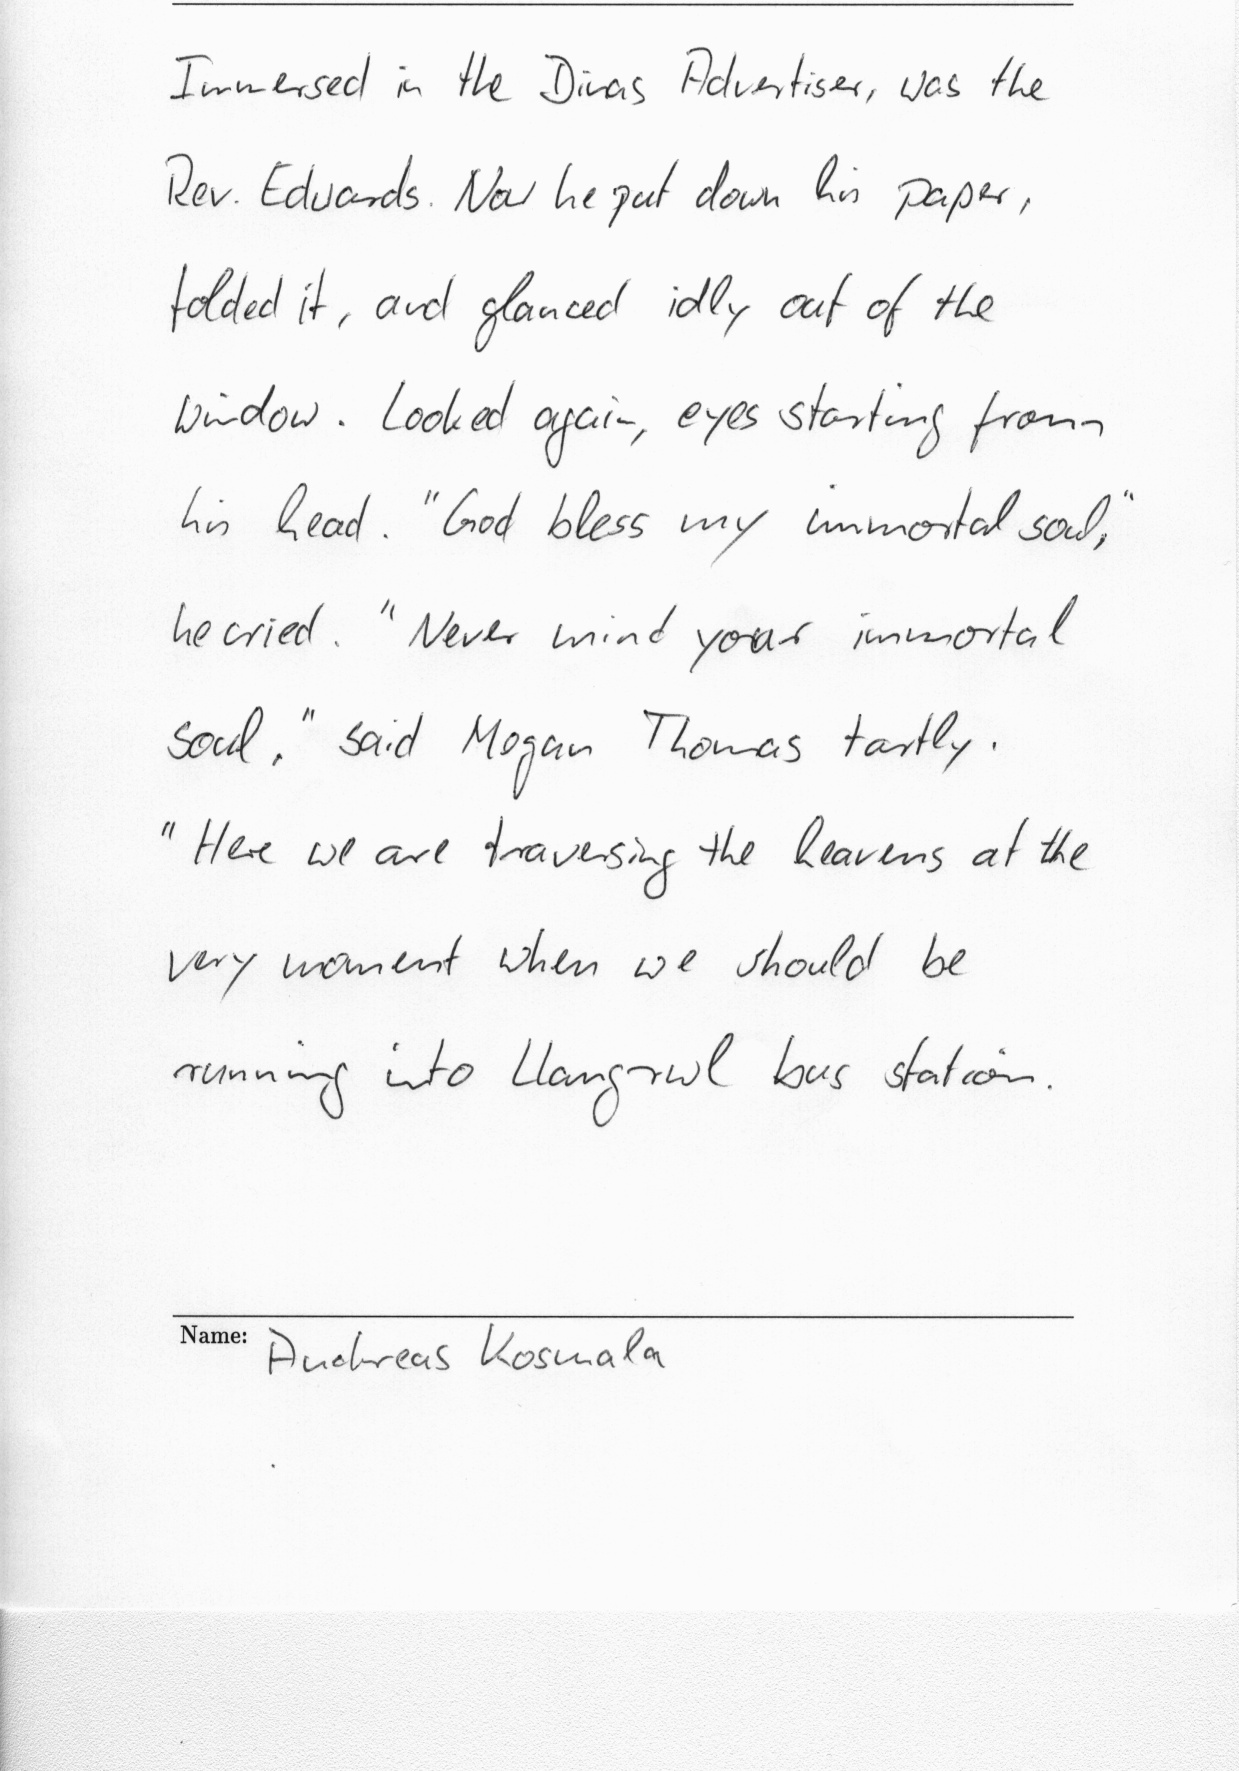 Immersed in the Dinas Advertiser, was the
Rev. Edwards. Now he put down his paper,
folded it, and glanced idly out of the
window. Looked again, eyes starting from
his head. "God bless my immortal soul,"
he cried. "Never mind your immortal
soul," said Mogan Thomas tartly.
"Here we are traversing the heavens at the
very moment when we should be
running into Llangrwl bus station.
Name: Andreas Kosmala